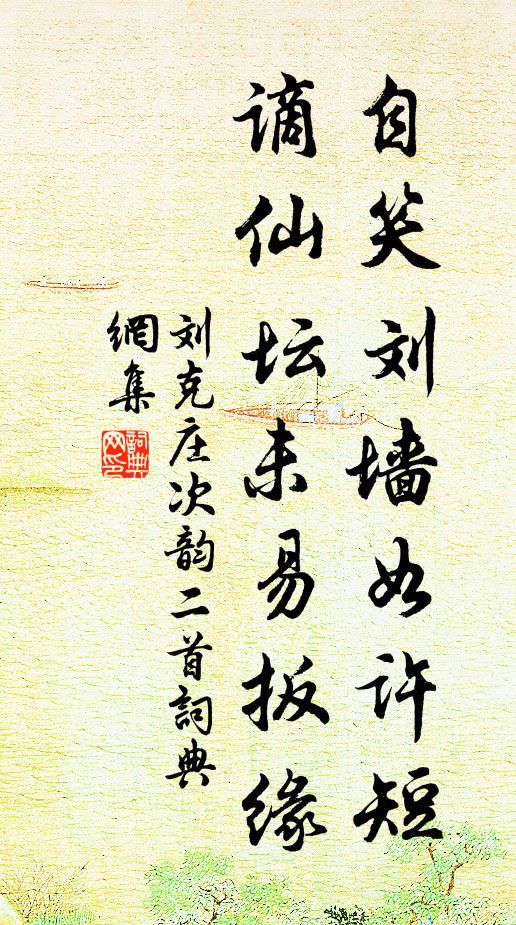 自笑刘墙如许短
谪仙坛未易扳缘
刘克庄次韵二首詞典
網集
詞典網印